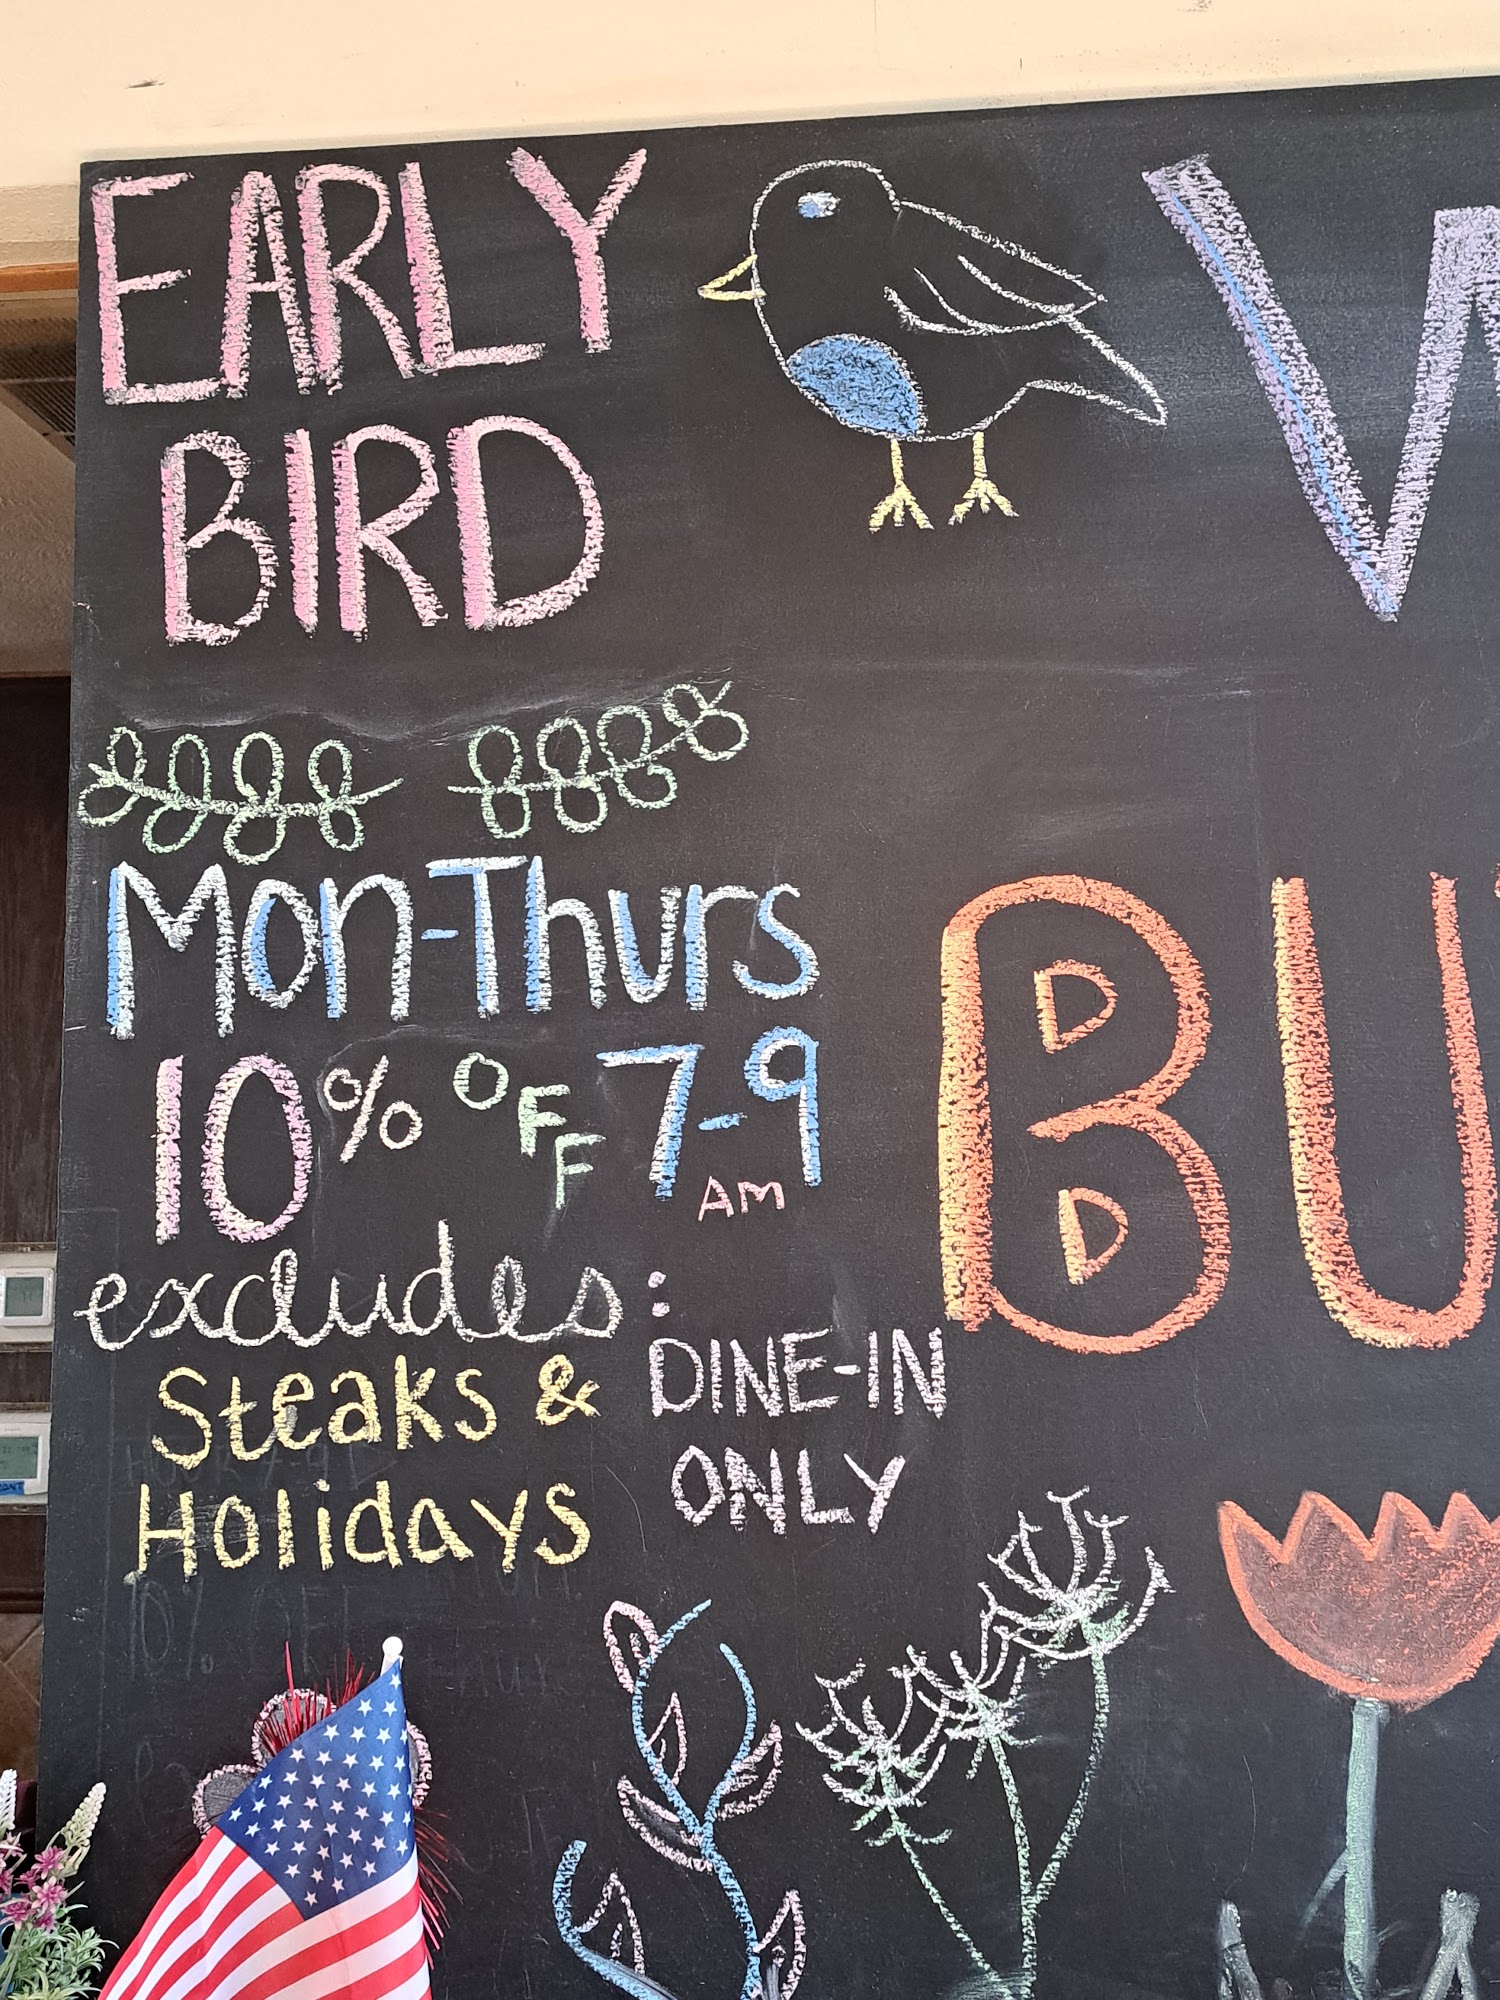 EARLY
BIRD
Mon-Thurs
10% OFF 7-9
AM
excludes:
Steaks &
Holidays
DINE-IN
ONLY
W
BU